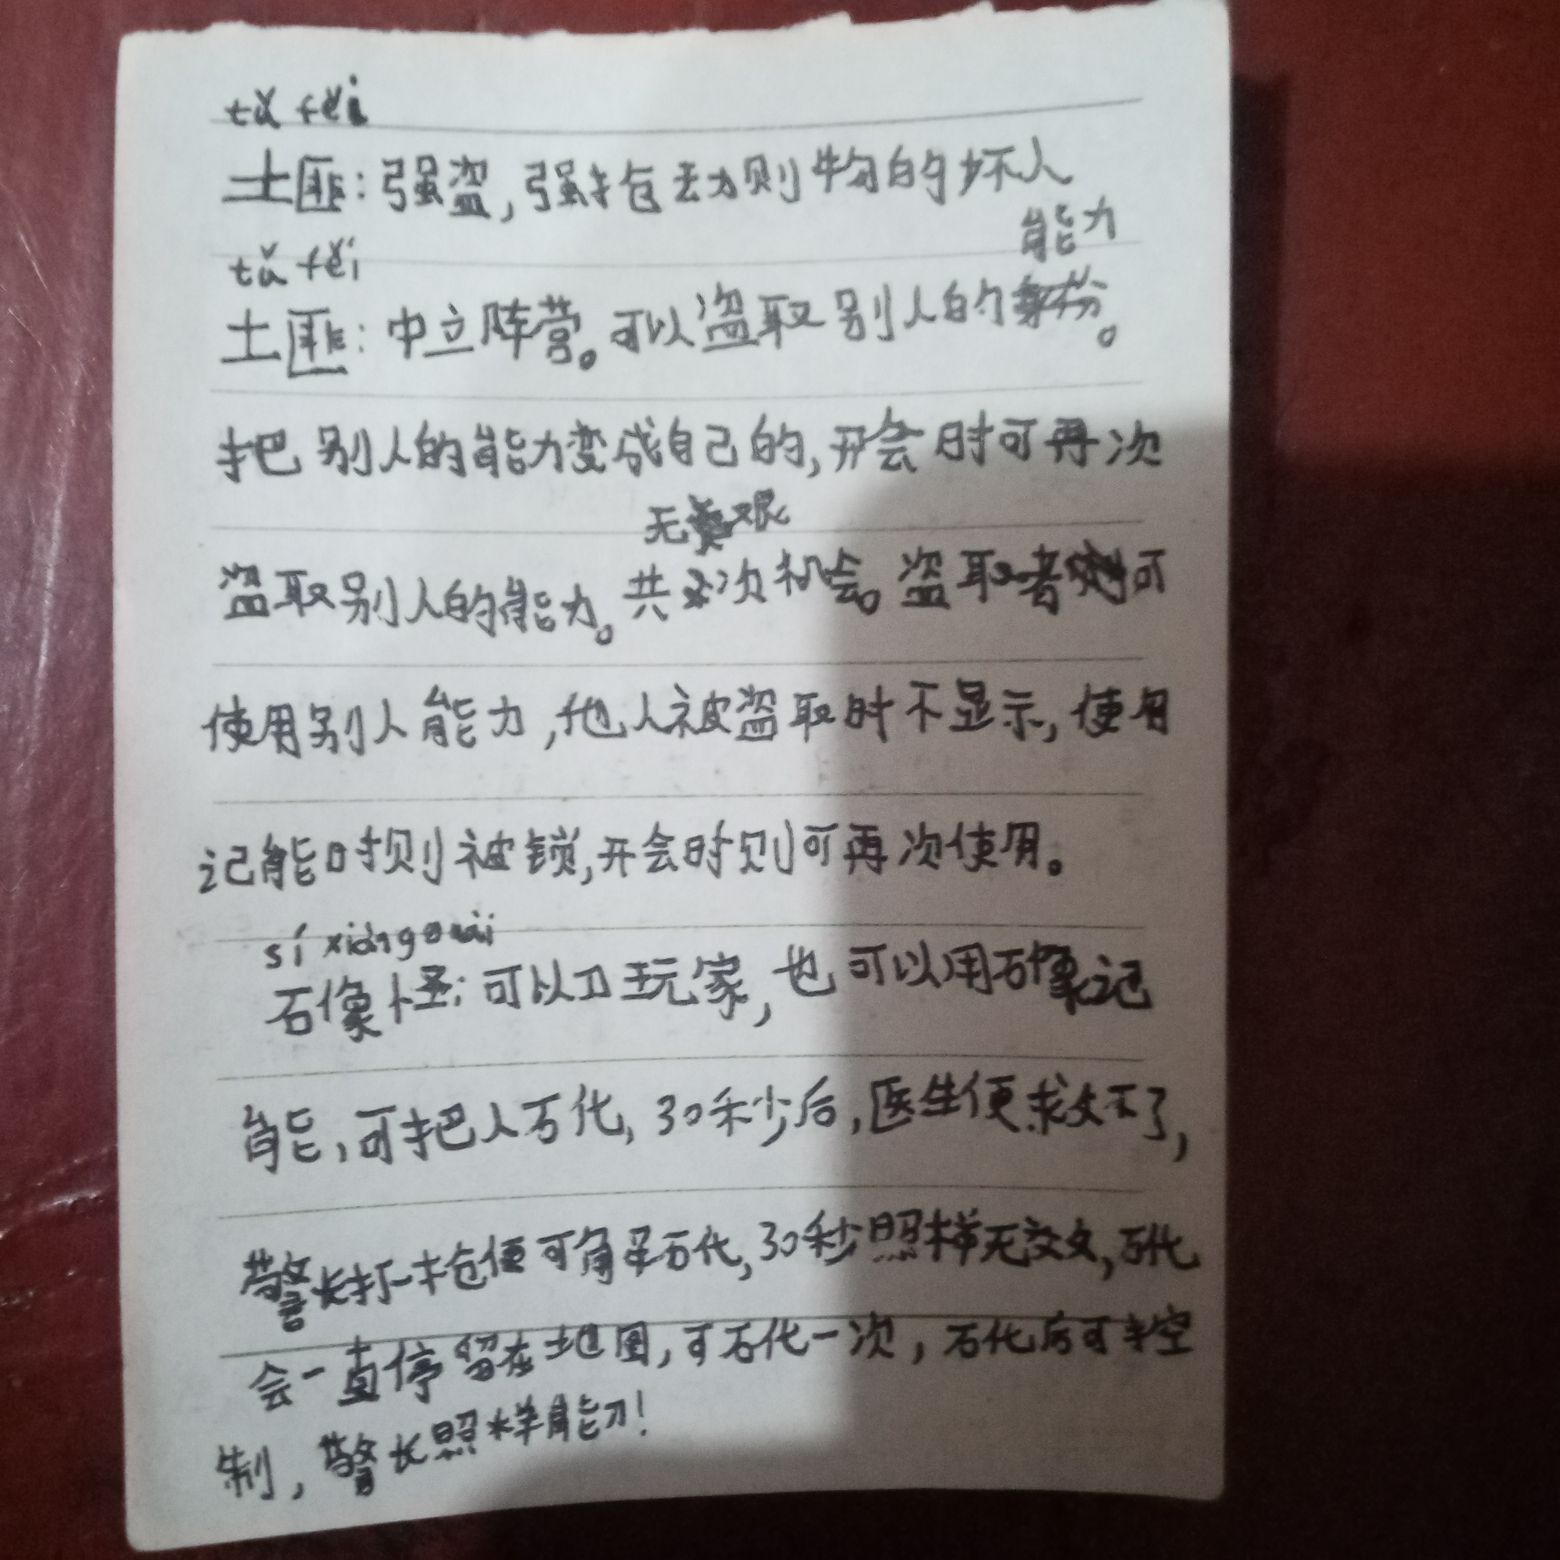 tǔ fěi
土匪：强盗，强抢劫财物的坏人
能力
tǔ fěi
土匪：中立阵营。可以盗取别人的身份。
把别人的能力变成自己的，开会时可再次
无限
盗取别人的能力。共次机会。盗取者可
使用别人能力，他人被盗取时不显示，使用
记能时则被锁，开会时则可再次使用。
sí xiàng guài
石像怪：可以刀玩家，也可以用石像记
能，可把人石化，30秒后，医生便救不了，
警长打一枪便可解石化，30秒照样无效，石化
会一直停留在地图，可石化一次，石化后可控
制，警长照样能刀！